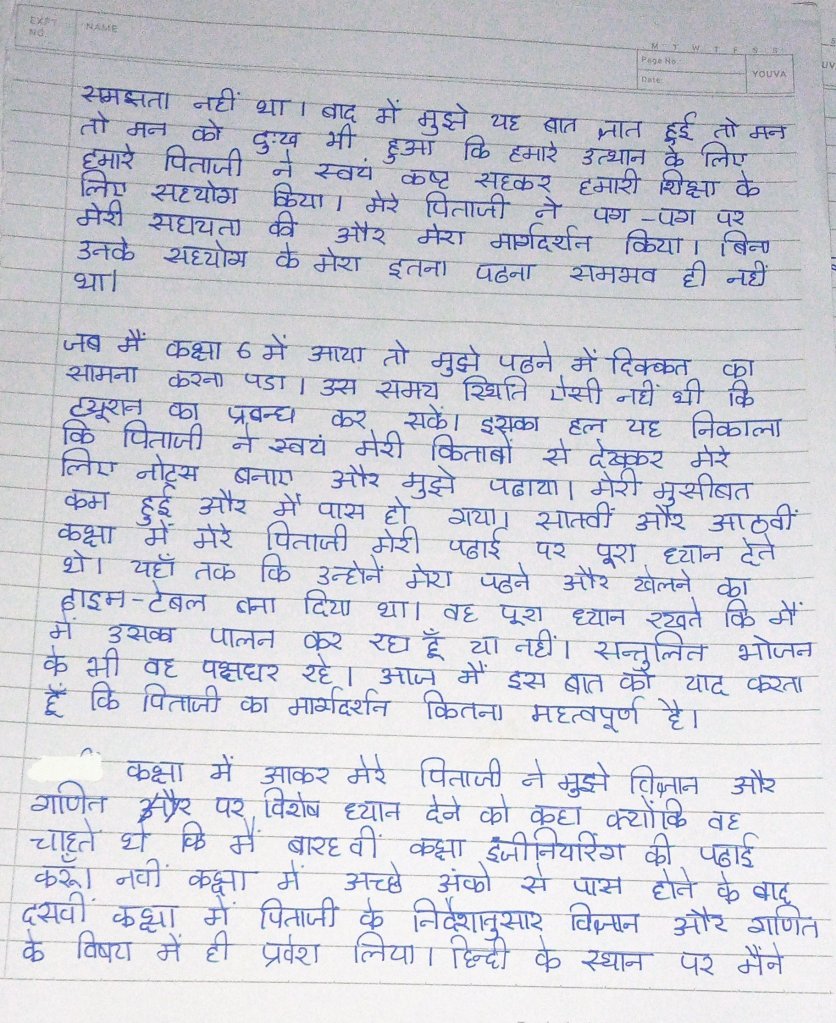 EXPT
NO
NAME
M T W T F S S
Page No.
YOUVA
Date:
UV
समझता नहीं था। बाद में मुझे यह बात ज्ञात हुई तो मन
तो मन को दुःख भी हुआ कि हमारे उत्थान के लिए
हमारे पिताजी ने स्वयं कष्ट सहकर हमारी शिक्षा के
लिए सहयोग किया। मेरे पिताजी ने पग-पग पर
मेरी सहायता की और मेरा मार्गदर्शन किया। बिना
उनके सहयोग के मेरा इतना पढना समभव ही नहीं
था।
जब मैं कक्षा 6 में आया तो मुझे पढने में दिक्कत का
सामना करना पडा। उस समय स्थिति ऐसी नहीं थी कि
ट्यूशन का प्रबन्ध कर सकें। इसका हल यह निकाला
कि पिताजी ने स्वयं मेरी किताबों से देखकर मेरे
लिए नोट्स बनाए और मुझे पढाया। मेरी मुसीबत
कम हुई और मैं पास हो गया। सातवीं और आठवीं
कक्षा में मेरे पिताजी मेरी पढाई पर पूरा ध्यान देते
थे। यहाँ तक कि उन्होनें मेरा पढने और खेलने का
टाइम-टेबल बना दिया था। वह पूरा ध्यान रखते कि मैं
में उसका पालन कर रहा हूँ या नहीं। सन्तुलित भोजन
के भी वह पक्षधर रहे। आज मैं इस बात को याद करता
हूँ कि पिताजी का मार्गदर्शन कितना महत्वपूर्ण है।
कक्षा में आकर मेरे पिताजी ने मुझे विज्ञान और
गणित और पर विशेष ध्यान देने को कहा क्योंकि वह
चाहते थे कि मैं बारहवीं कक्षा इंजीनियरिंग की पढाई
करूँ। नवीं कक्षा में अच्छे अंको से पास होने के बाद
दसवीं कक्षा में पिताजी के निर्देशानुसार विज्ञान और गणित
के विषय में ही प्रवेश लिया। हिन्दी के स्थान पर मैंने